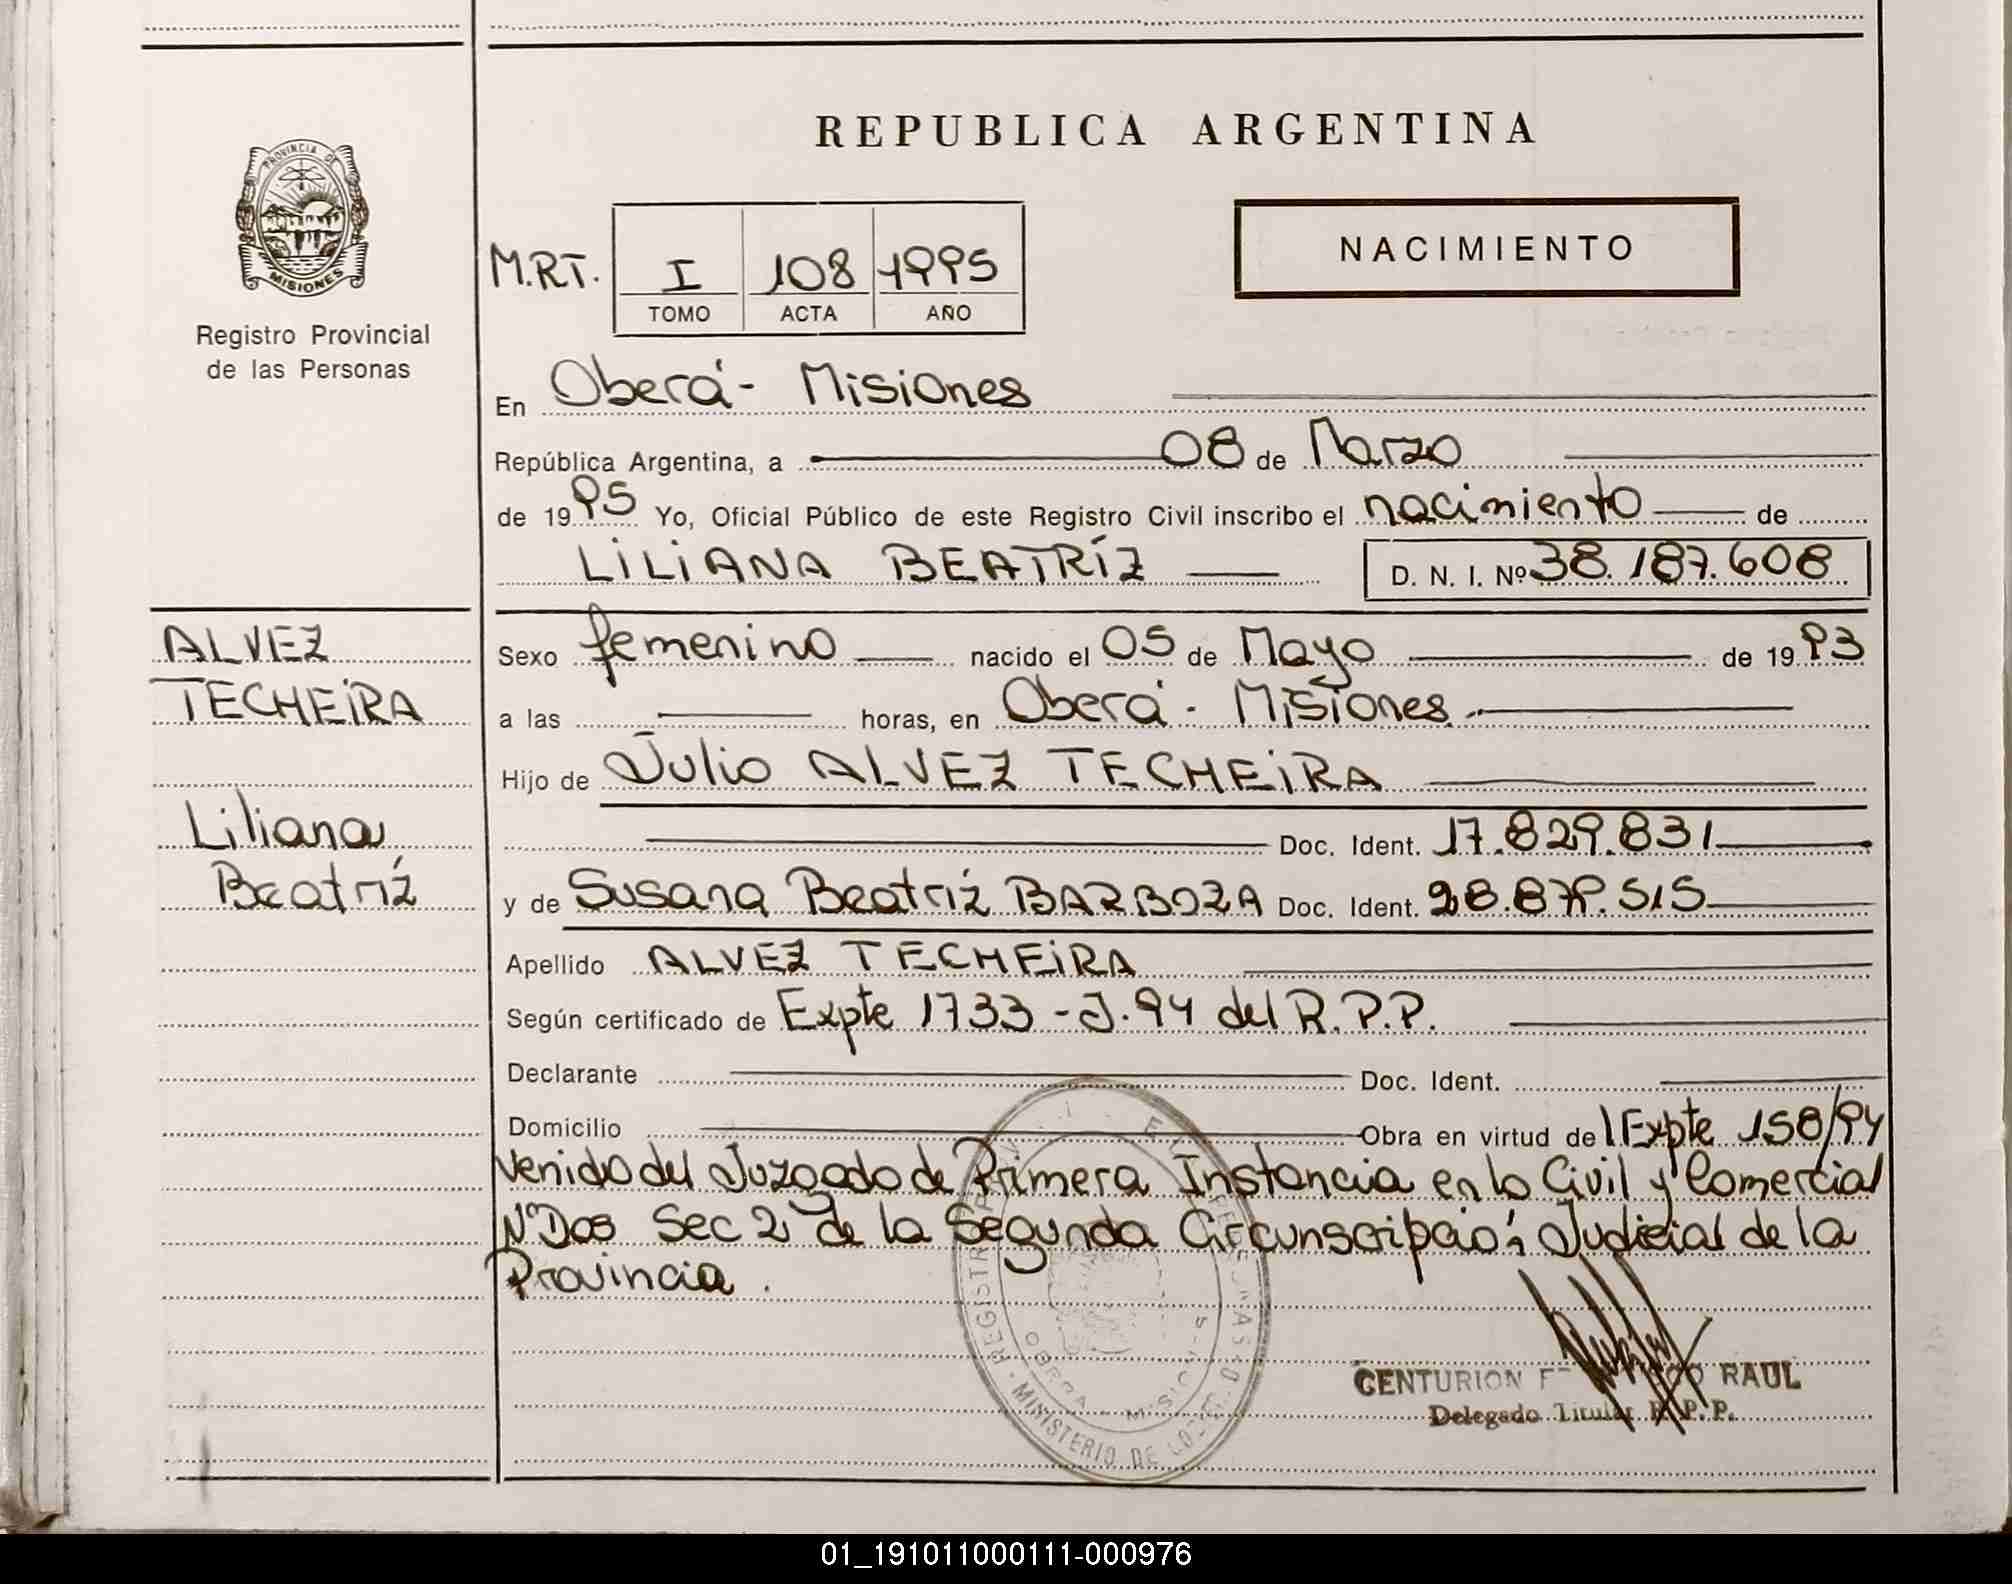 PROVINCIA DE
MISIONES
Registro Provincial
de las Personas
REPUBLICA ARGENTINA
NACIMIENTO
M.R.T. I 108 1995
TOMO ACTA AÑO
En Oberá - Misiones
República Argentina, a 08 de Marzo
de 1995 Yo, Oficial Público de este Registro Civil inscribo el nacimiento de
LILIANA BEATRÍZ D. N. I. Nº 38.187.608
ALVEZ
TECHEIRA
Liliana
Beatríz
Sexo femenino nacido el 05 de Mayo de 1993
a las horas, en Oberá - Misiones.
Hijo de Julio ALVEZ TECHEIRA
Doc. Ident. 17.829.831
y de Susana Beatríz BARBOZA Doc. Ident. 28.879.515
Apellido ALVEZ TECHEIRA
Según certificado de Expte 1733 - J. 94 del R.P.P.
Declarante Doc. Ident.
Domicilio Obra en virtud del Expte 158/94
venido del Juzgado de Primera Instancia en lo Civil y Comercial
Nº Dos Sec 2 de la Segunda Circunscripción Judicial de la
Provincia.
CENTURION RAUL
Delegado Titular R. P. P.
REGISTR
OBERA - MISIO
MINISTERIO DE
01_191011000111-000976